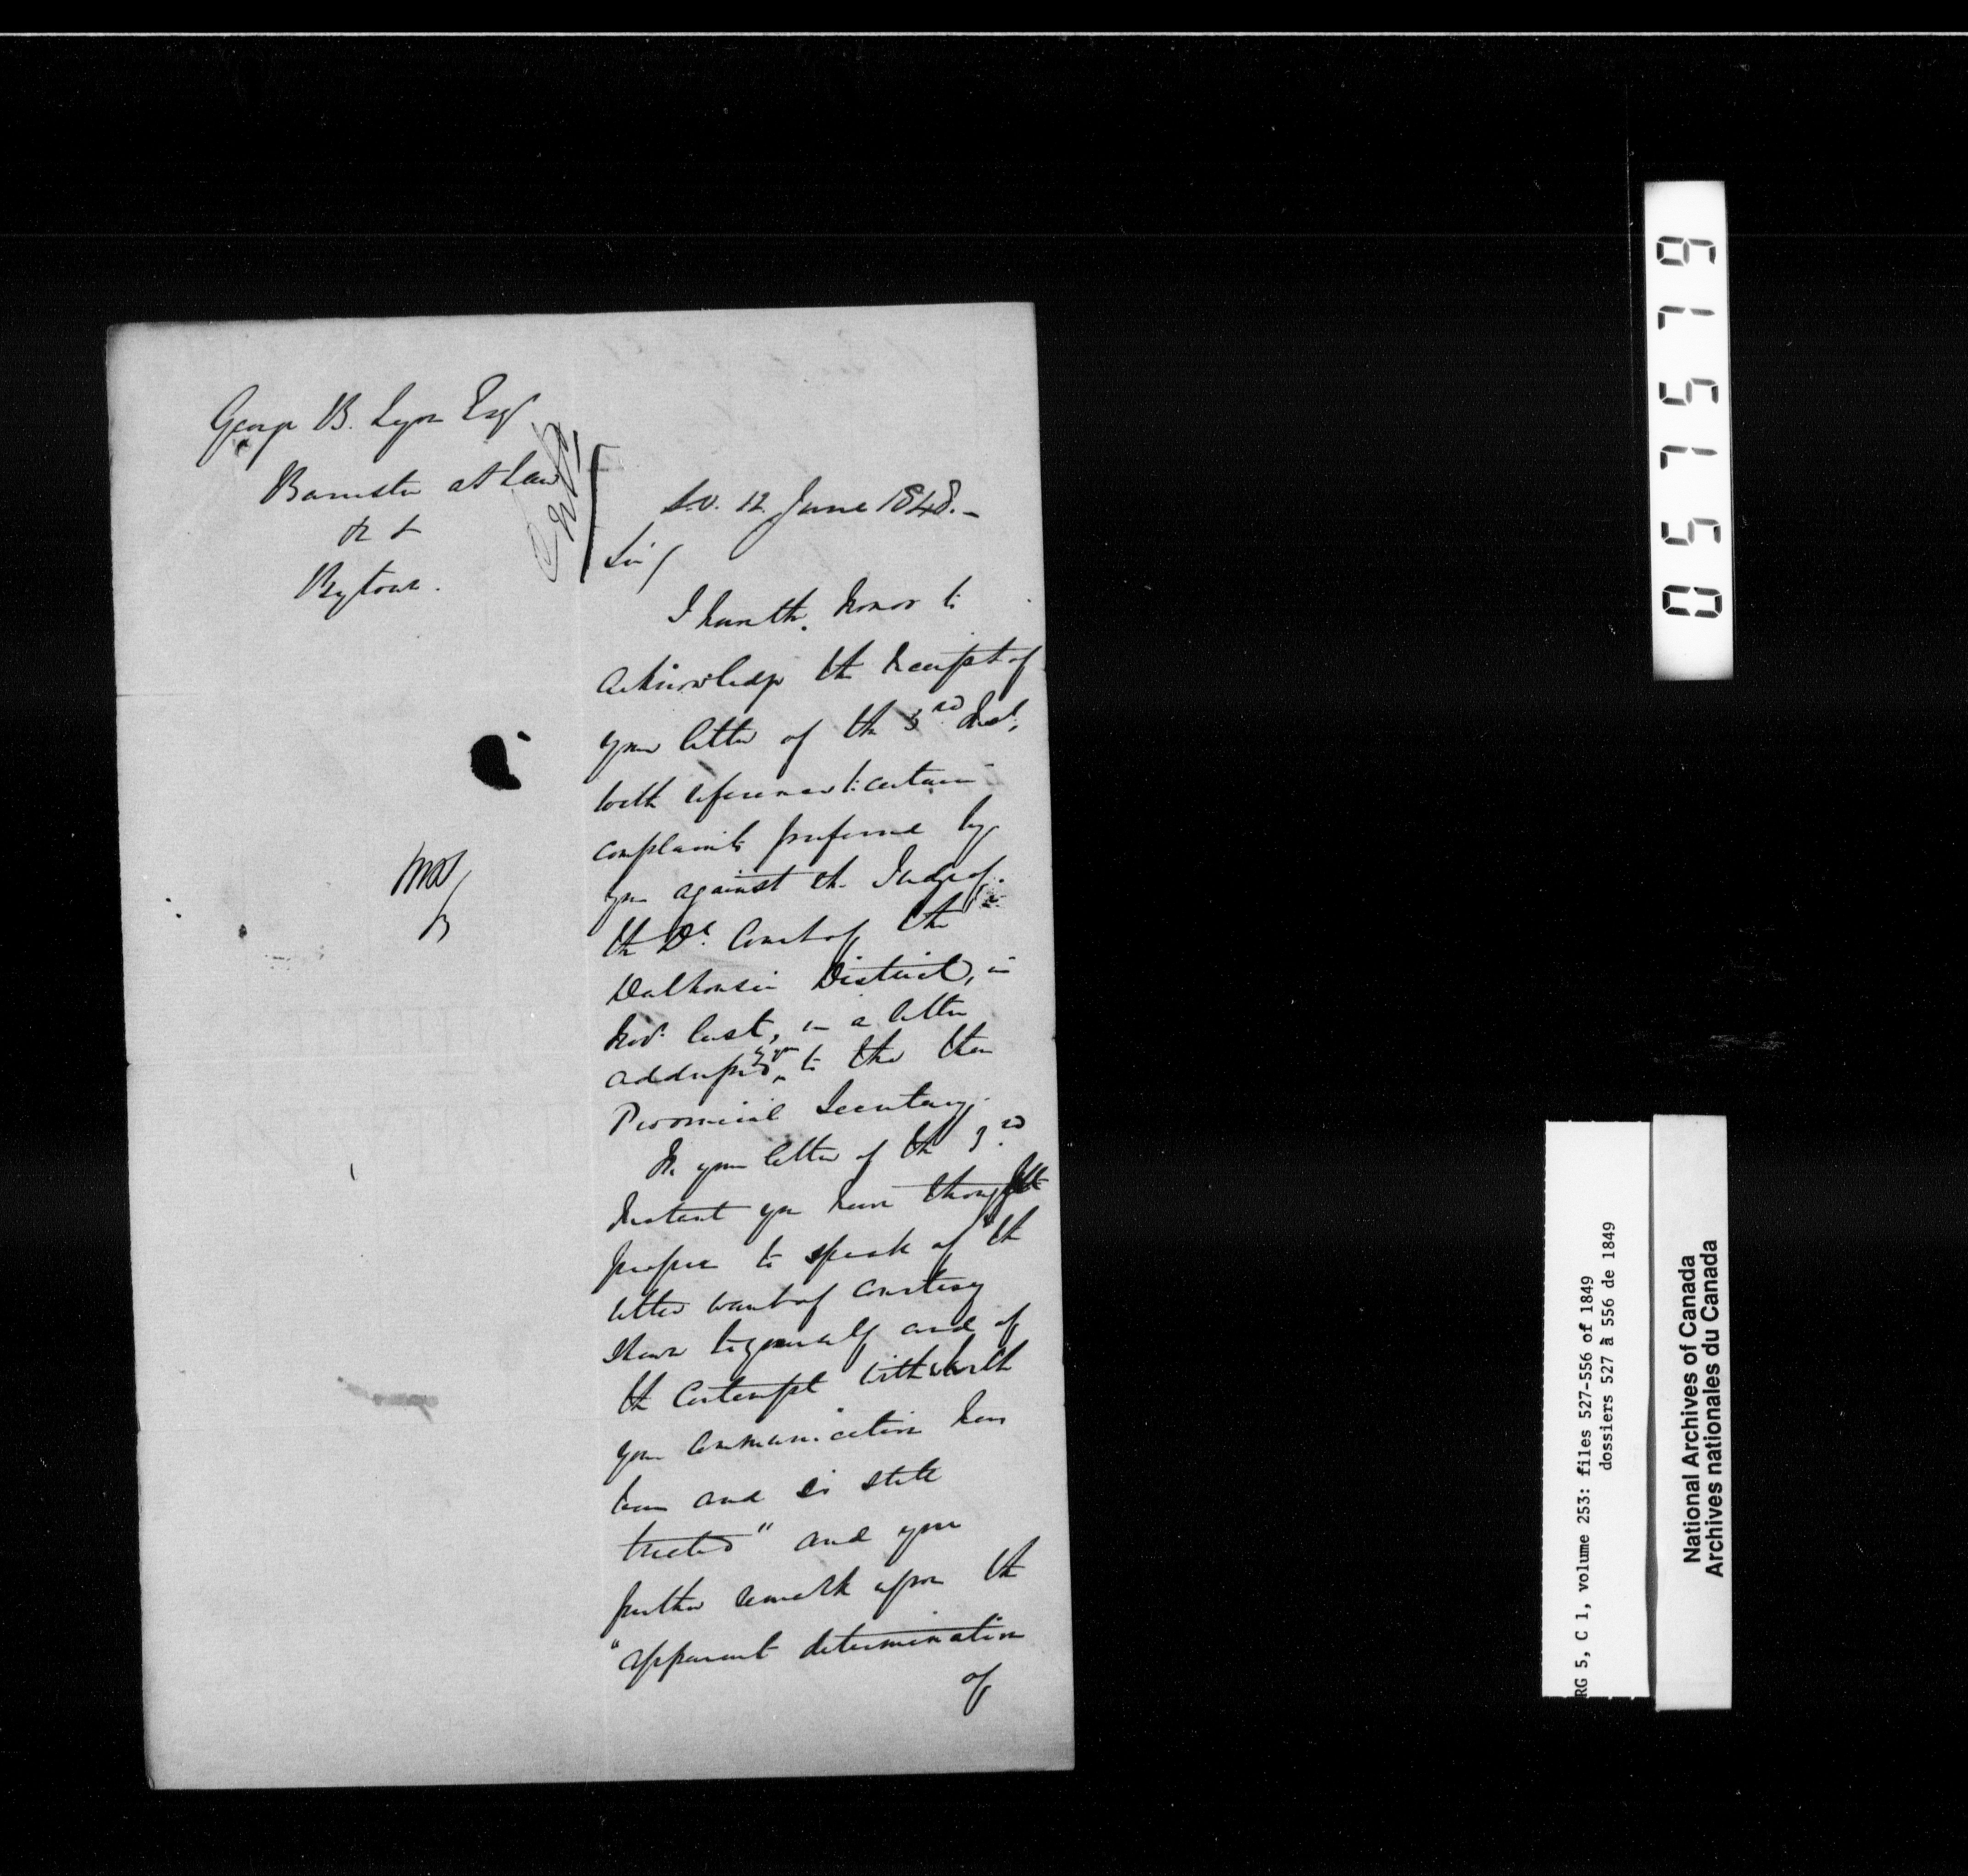 George B. Lyon Esqr
Barrister at Law
&c &
Bytown.
S.O. 12 June 1848.-
Sir/
I have the honor to
acknowledge the receipt of
your letter of the 3rd Inst,
with reference to certain
complaints preferred by
you against the Judge of
the Dt. Court of the
Dalhousie District, in
Novr last, in a letter
addressed by you to the then
Provincial Secretary.
In your letter of the 3rd
Instant you have thought
proper to speak of "the
utter want of courtesy
shewn to yourself and of
the contempt with which
your communication has
been and is still
treated" and you
further remark upon the
"apparent determination
of
0515719
RG 5, C 1, volume 253: files 527-556 of 1849
dossiers 527 à 556 de 1849
National Archives of Canada
Archives nationales du Canada